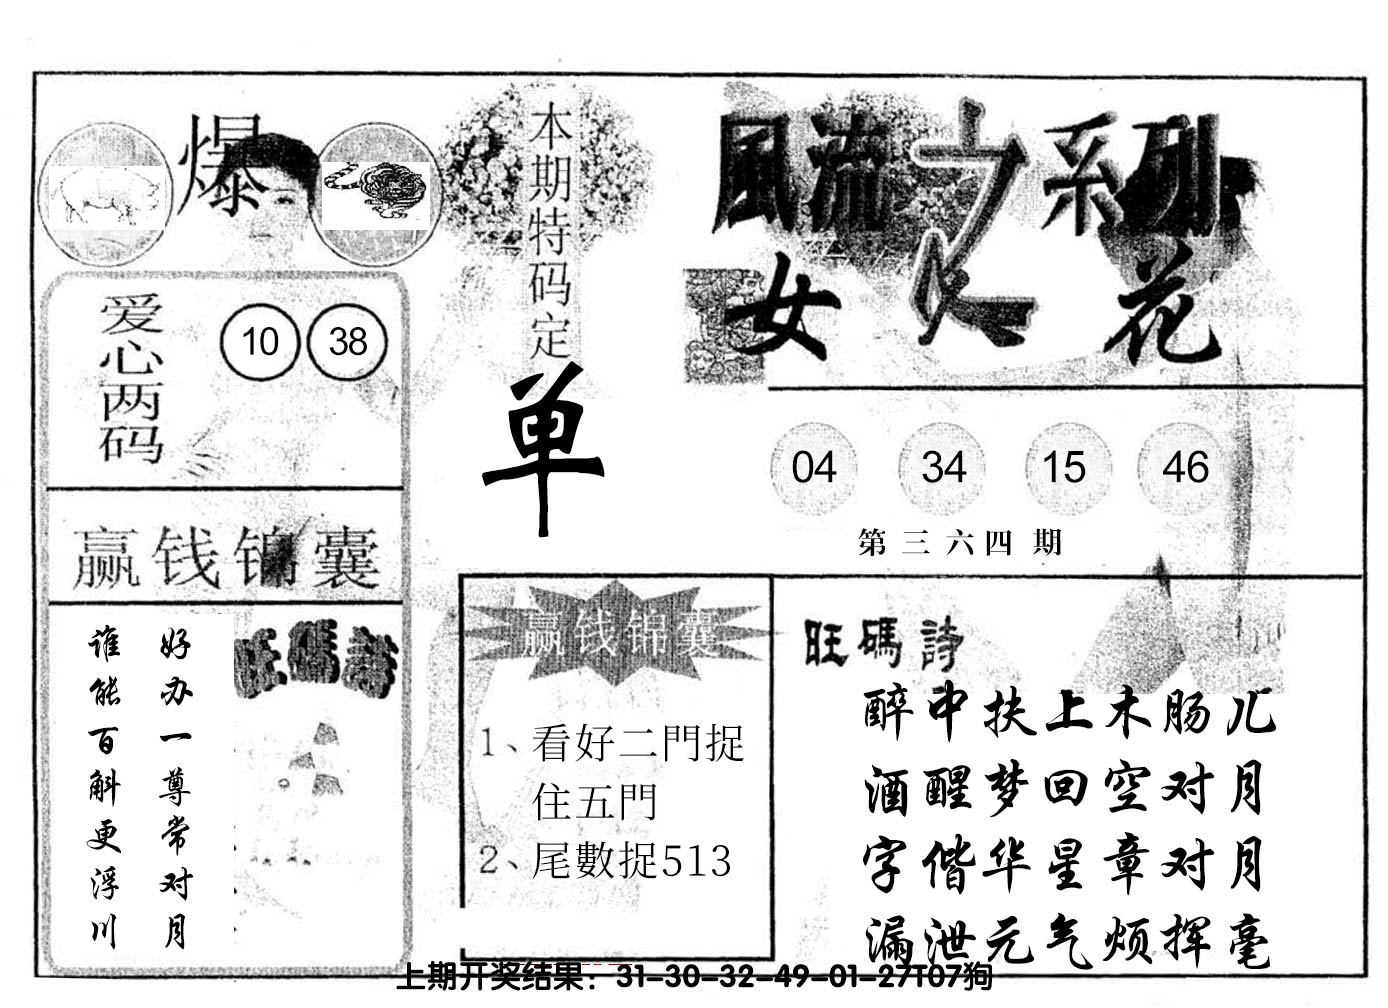 爆
本期特码定
单
風流之系列
女人花
爱心两码
10 38
04 34 15 46
第三六四期
赢钱锦囊
好办一尊常对月
谁能百斛更浮川
旺碼詩
赢钱锦囊
1、看好二門捉
住五門
2、尾數捉513
旺碼詩
醉中扶上木肠儿
酒醒梦回空对月
字偕华星章对月
漏泄元气烦挥毫
上期开奖结果：31-30-32-49-01-27T07狗